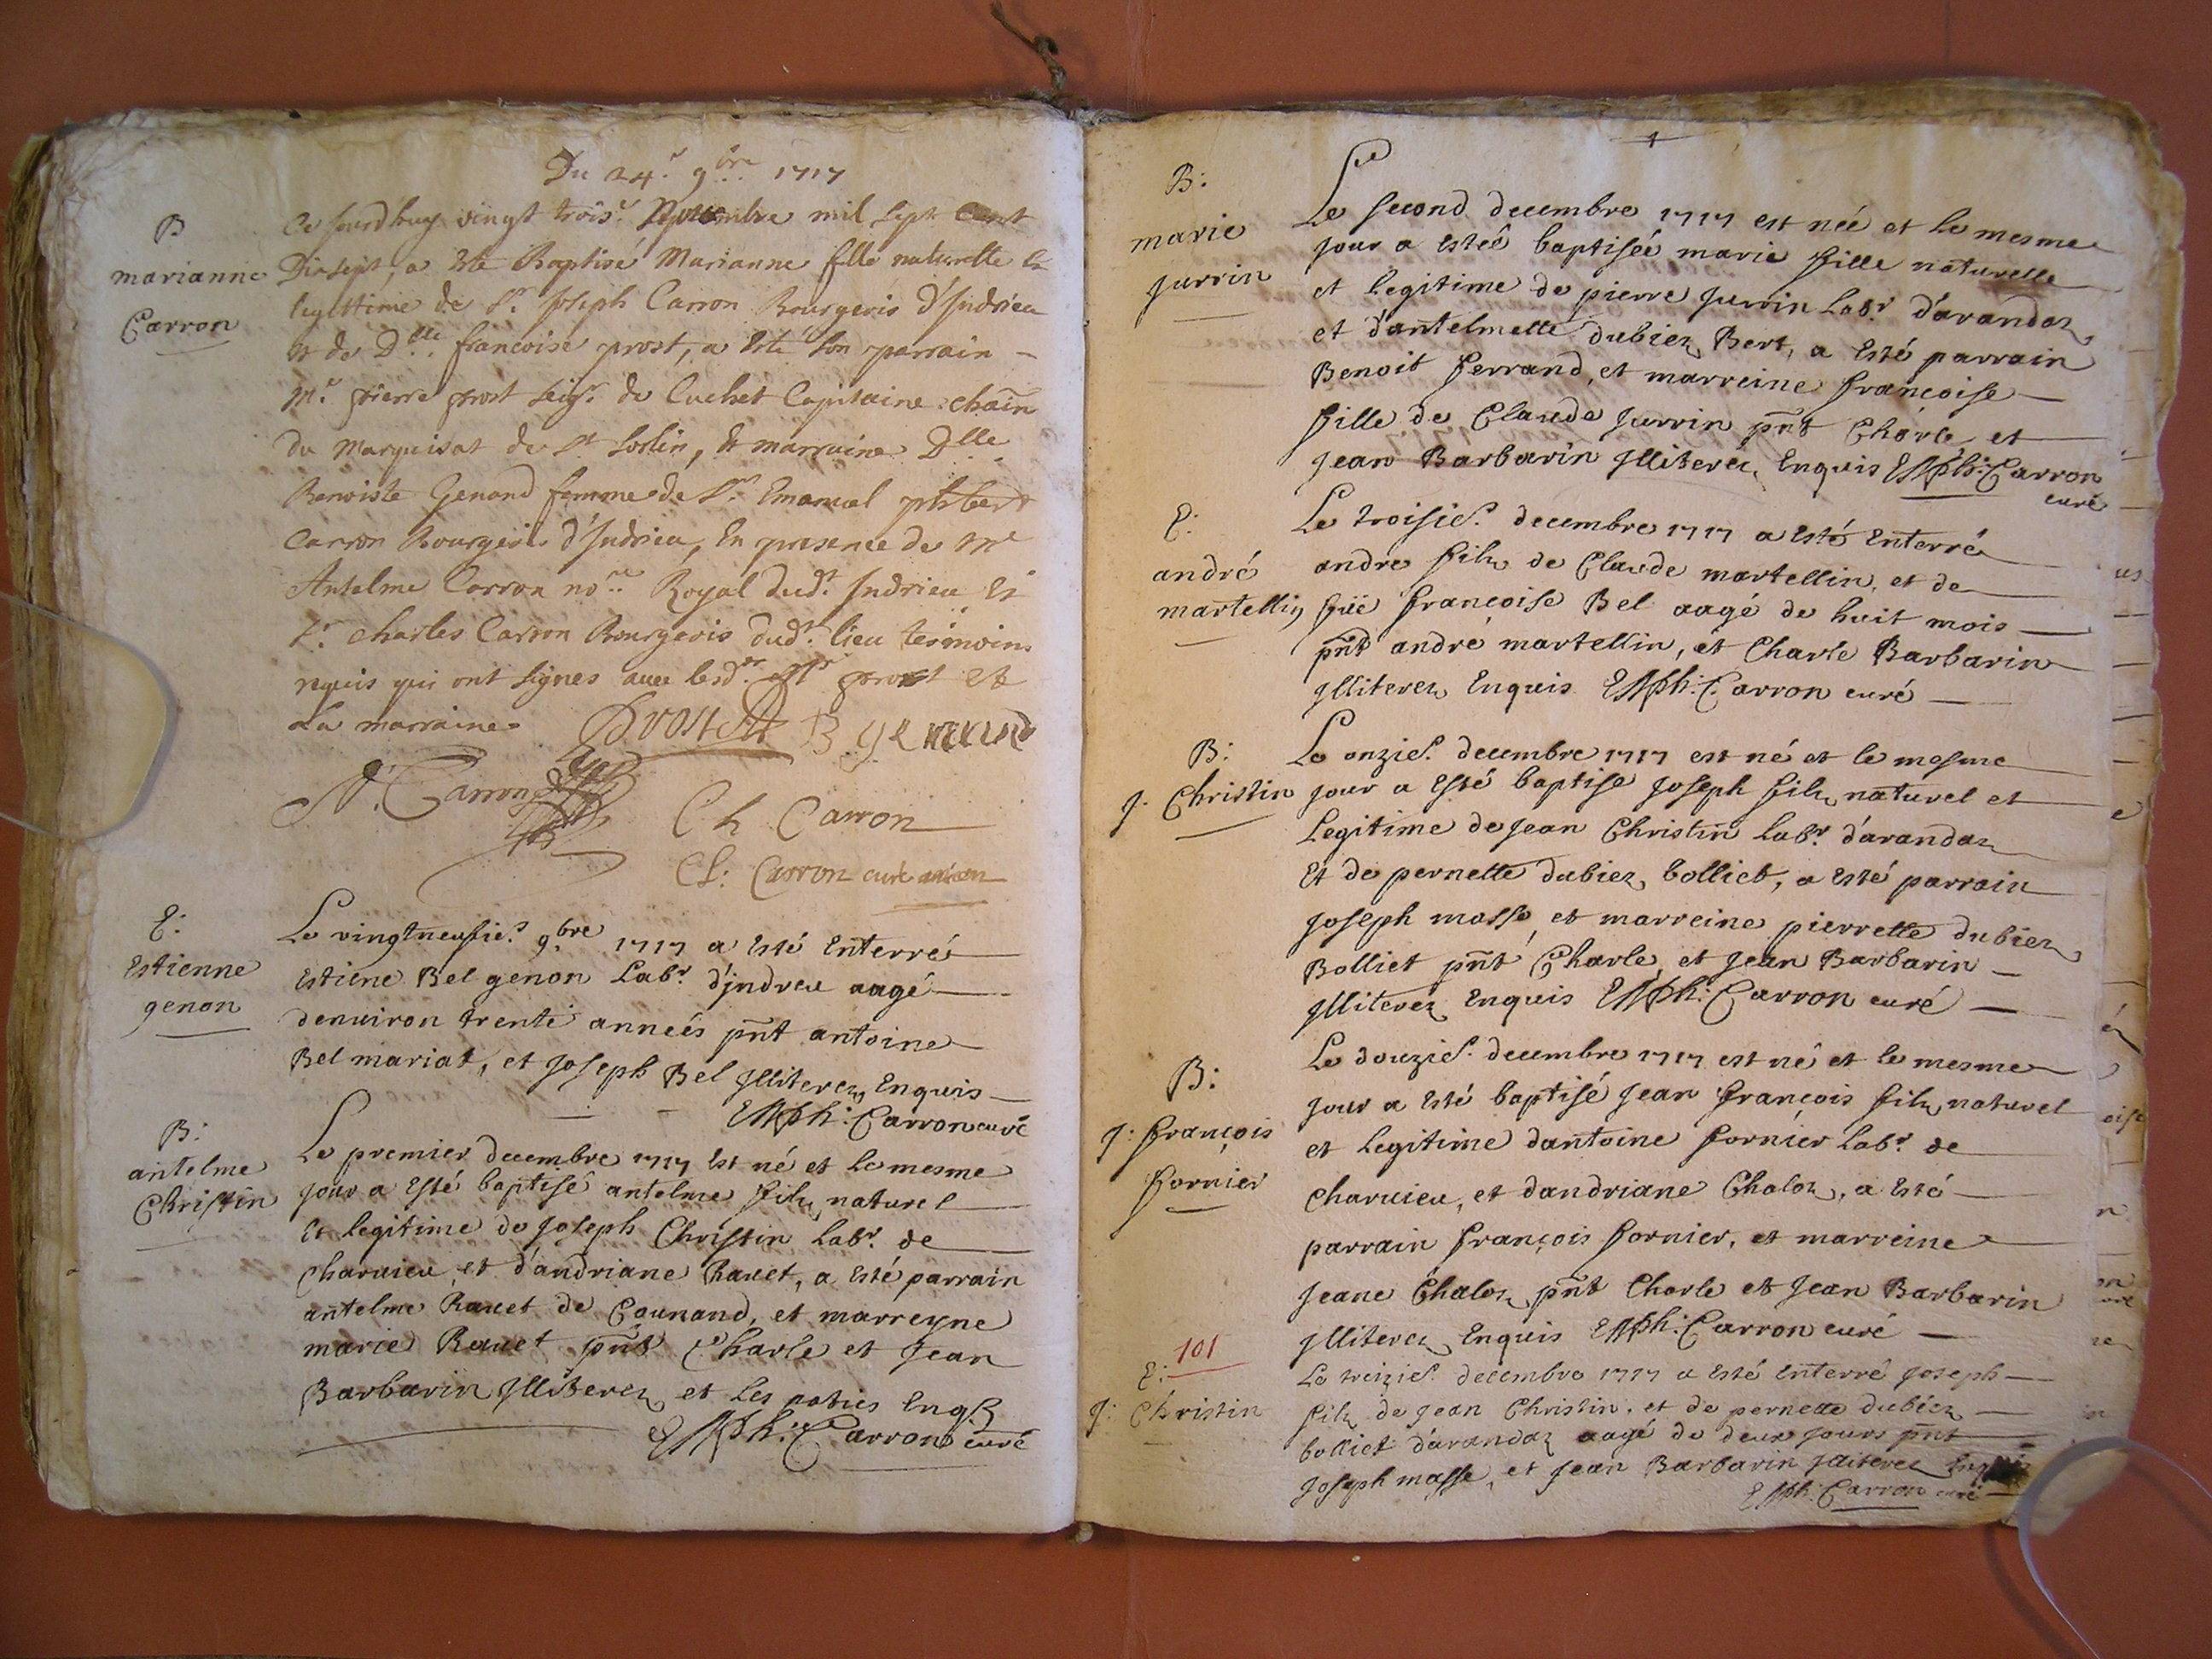 Du 24.e 9.bre 1717
B
marianne
Carron
Ce jourdhuy vingt trois.e Novembre mil sept cent
Dixsept, a Esté Baptisé Marianne fille naturelle et
legittime de S.r Joseph Carron Bourgeois d'Indrieu
et de D.lle francoise prost, a esté son parrain
M.r pierre prost seig.r de Cuchet Capitaine chain
du Marquisat de S.t Sorlin, et marraine D.lle
Benoiste Genand femme de S.r Emanuel phibert
Carron Bourgeois d'Indrieu, En presence de M.e
Antelme Carron no.re Royal dud.t Indrieu et
S.r charles Carron Bourgeois dud.t lieu temoins
requis qui ont signes avec lesd. prost et
La marraine Prost B genand
Carron
Ch Carron
Carron curé
E:
Estienne
genon
Le vingtneufie.e 9.bre 1717 a esté Enterré
Estiene Bel genon Lab.r d'jndreu aagé
denuiron trente anneés pnt antoine
Bel mariat, et Joseph Bel Jlliterez Enquis
Carron curé
B:
antelme
Christin
Le premier decembre 1717 Est né et le mesme
jour a esté baptisé antelme filz naturel
et legitime de Joseph Christin lab.r de
Charuieu et d'andriane Rauet, a esté parrain
antelme Rauet de Counand, et marreyne
marie Rauet pnt Charle et Jean
Barbarin Jlliterez et Les parties Enq.s
Carron curé
B:
marie
Jurrin
Le second decembre 1717 est née et le mesme
jour a esteé baptiseé marie fille naturelle
et legitime de pierre Jurrin Lab.r d'arandaz
et d'antelmette dubiez Bert, a esté parrain
Benoit ferrand, et marreine francoise
fille de Claude Jurrin pnt Charle et
Jean Barbarin Jlliterez Enquis Carron
curé
E:
andré
martellin
Le troisie.e decembre 1717 a esté Enterré
andre filz de Claude martellin, et de
füe francoise Bel aagé de huit mois
pnt andré martellin, et Charle Barbarin
Jlliterez Enquis Carron curé
B:
J. Christin
Le onzie.e decembre 1717 est né et le mesme
jour a esté baptise Joseph filz naturel et
Legitime de Jean Christin lab.r d'arandaz
Et de pernette dubiez bolliet, a esté parrain
Joseph masse, et marreine pierrette dubiez
Bolliet pnt Charle et Jean Barbarin
Jlliterez Enquis Carron curé
B:
J: françois
fornier
Le douzie.e decembre 1717 est né et le mesme
jour a esté baptisé Jean françois filz naturel
et legitime dantoine fornier lab.r de
Charuieu, et dandriane Chaloz, a esté
parrain françois fornier, et marreine
Jeane Chaloz pnt Charle et Jean Barbarin
Jlliterez Enquis Carron curé
101
E:
J: Christin
Le treizie.e decembre 1717 a esté Enterré Joseph
filz de Jean Christin, et de pernette dubiez
bolliet d'arandaz aagé de deux jours pnt
Joseph masse, et Jean Barbarin Jlliterez
Carron curé